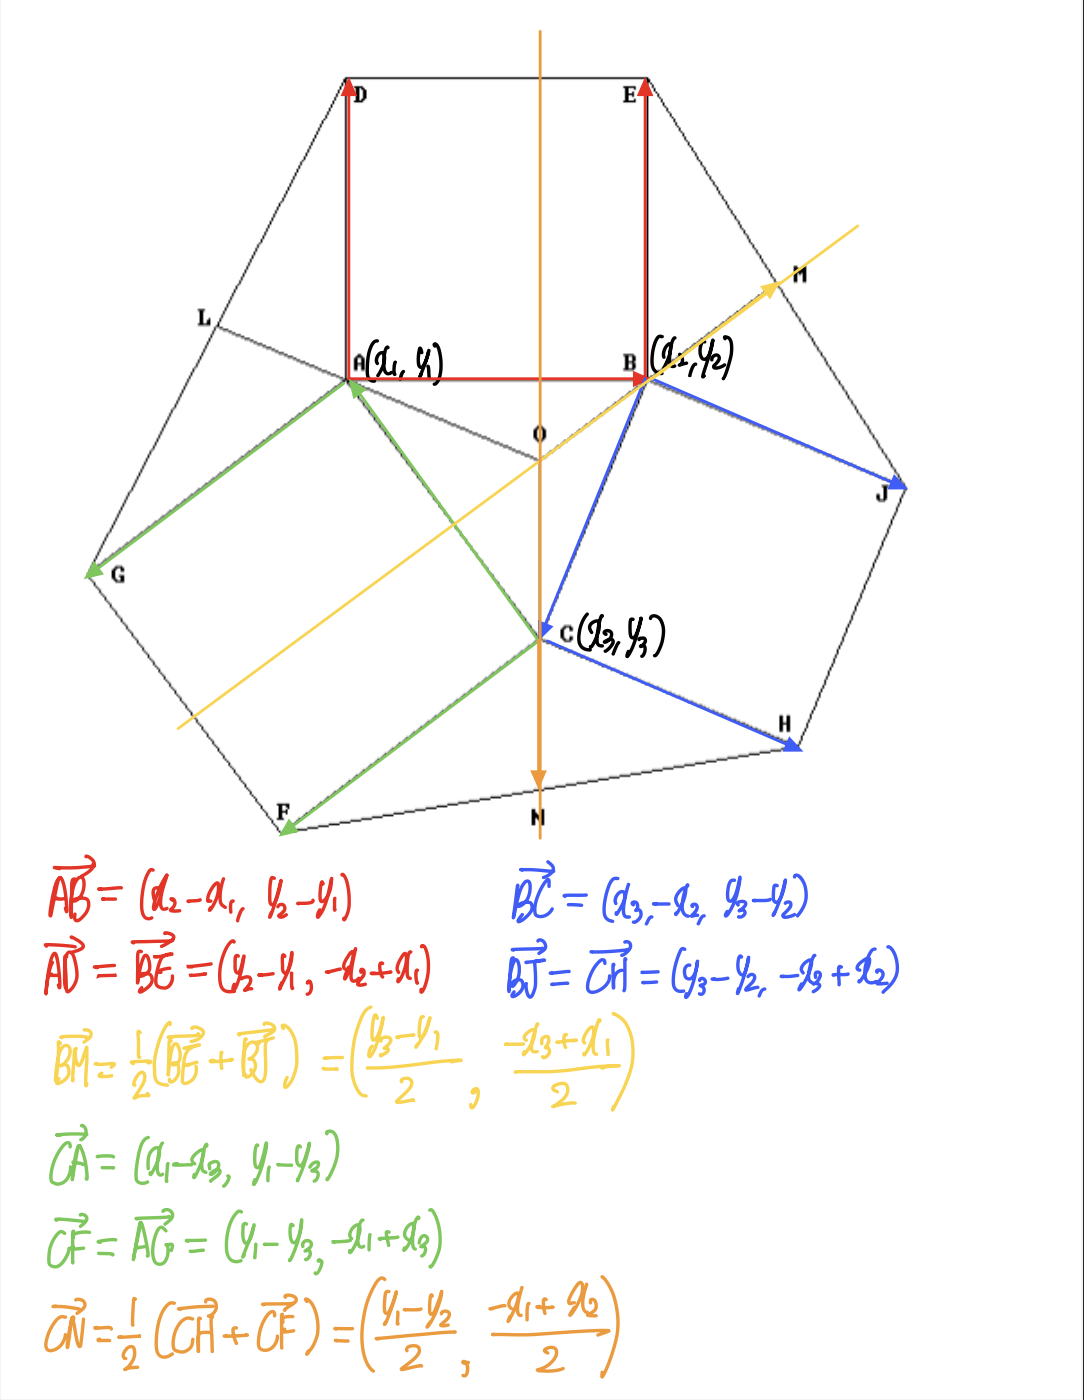 D E
M
L
A(x₁, y₁) B (x₂, y₂)
O
J
G
C(x₃, y₃)
H
F
N
$\overrightarrow{AB} = (x_2 - x_1, y_2 - y_1)$
$\overrightarrow{BC} = (x_3, -x_2, y_3 - y_2)$
$\overrightarrow{AD} = \overrightarrow{BE} = (y_2 - y_1, -x_2 + x_1)$
$\overrightarrow{BJ} = \overrightarrow{CH} = (y_3 - y_2, -x_3 + x_2)$
$\overrightarrow{BM} = \frac{1}{2}(\overrightarrow{BE} + \overrightarrow{BJ}) = \left(\frac{y_3 - y_1}{2}, \frac{-x_3 + x_1}{2}\right)$
$\overrightarrow{CA} = (x_1 - x_3, y_1 - y_3)$
$\overrightarrow{CF} = \overrightarrow{AG} = (y_1 - y_3, -x_1 + x_3)$
$\overrightarrow{CN} = \frac{1}{2}(\overrightarrow{CH} + \overrightarrow{CF}) = \left(\frac{y_1 - y_2}{2}, \frac{-x_1 + x_2}{2}\right)$